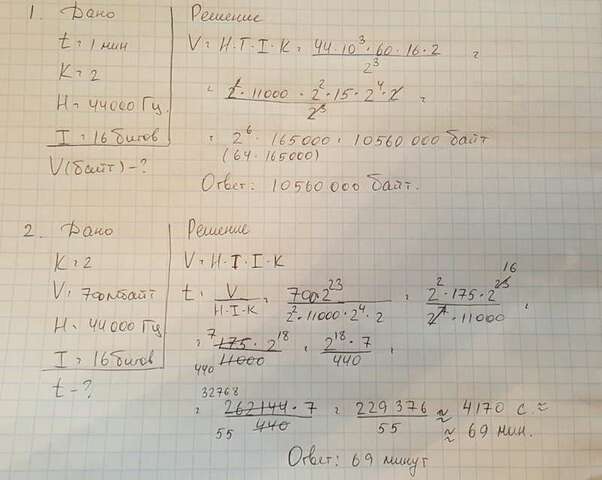 1. Дано
t = 1 мин
K = 2
H = 44000 Гц.
I = 16 битов
V(байт) - ?
Решение
V = H·T·I·K = 44·10³·60·16·2 / 2³ =
= 2²·11000·2²·15·2⁴·2 / 2³ =
= 2⁶·165000 = 10560 000 байт
(64·165000)
Ответ: 10560 000 байт.
2. Дано
K = 2
V = 700 мбайт
H = 44000 Гц
I = 16 битов
t - ?
Решение
V = H·T·I·K
t = V / H·I·K = 700·2²³ / 2²·11000·2⁴·2 = 2²·175·2²³ 16 / 2⁷·11000 =
= 7 175·2¹⁸ / 440 11000 = 2¹⁸·7 / 440 =
= 32768 262144·7 / 55 440 = 229 376 / 55 ≈ 4170 с. ≈
≈ 69 мин.
Ответ: 69 минут